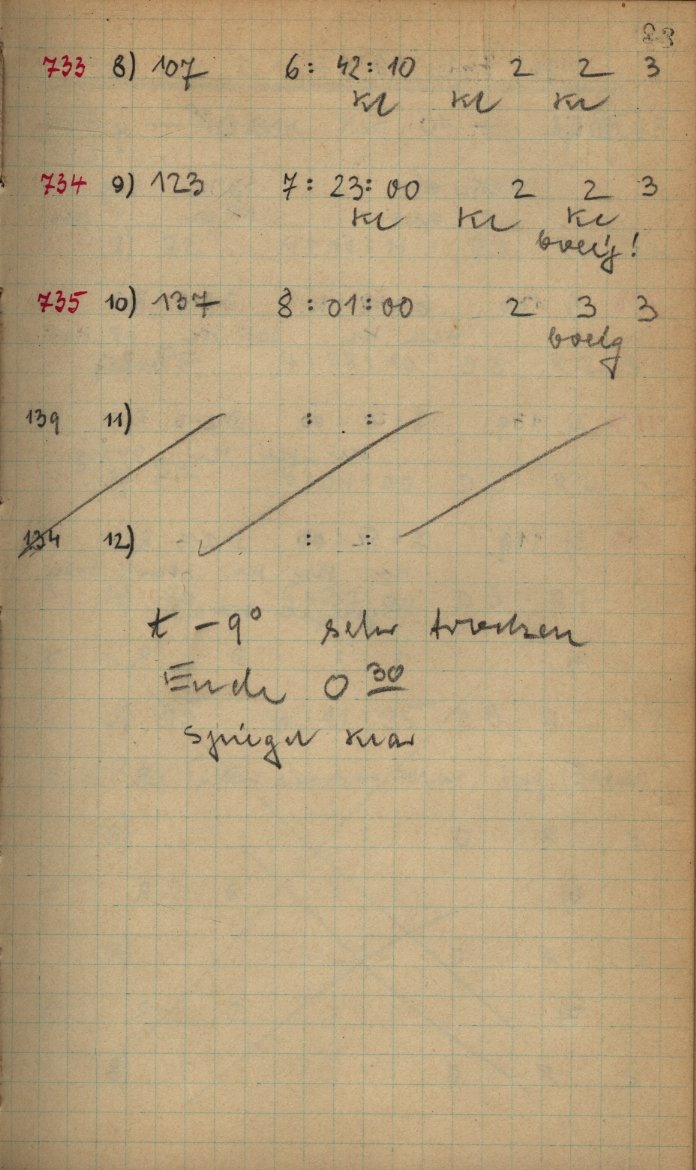 23
733 8) 107 6 : 42 : 10 2 2 3
kl kl kl
734 9) 123 7 : 23 : 00 2 2 3
kl kl kl
boeig!
735 10) 137 8 : 01 : 00 2 3 3
boeig
139 11) : :
134 12) : :
t -9° sehr trocken
Ende 0 30
Spiegel klar